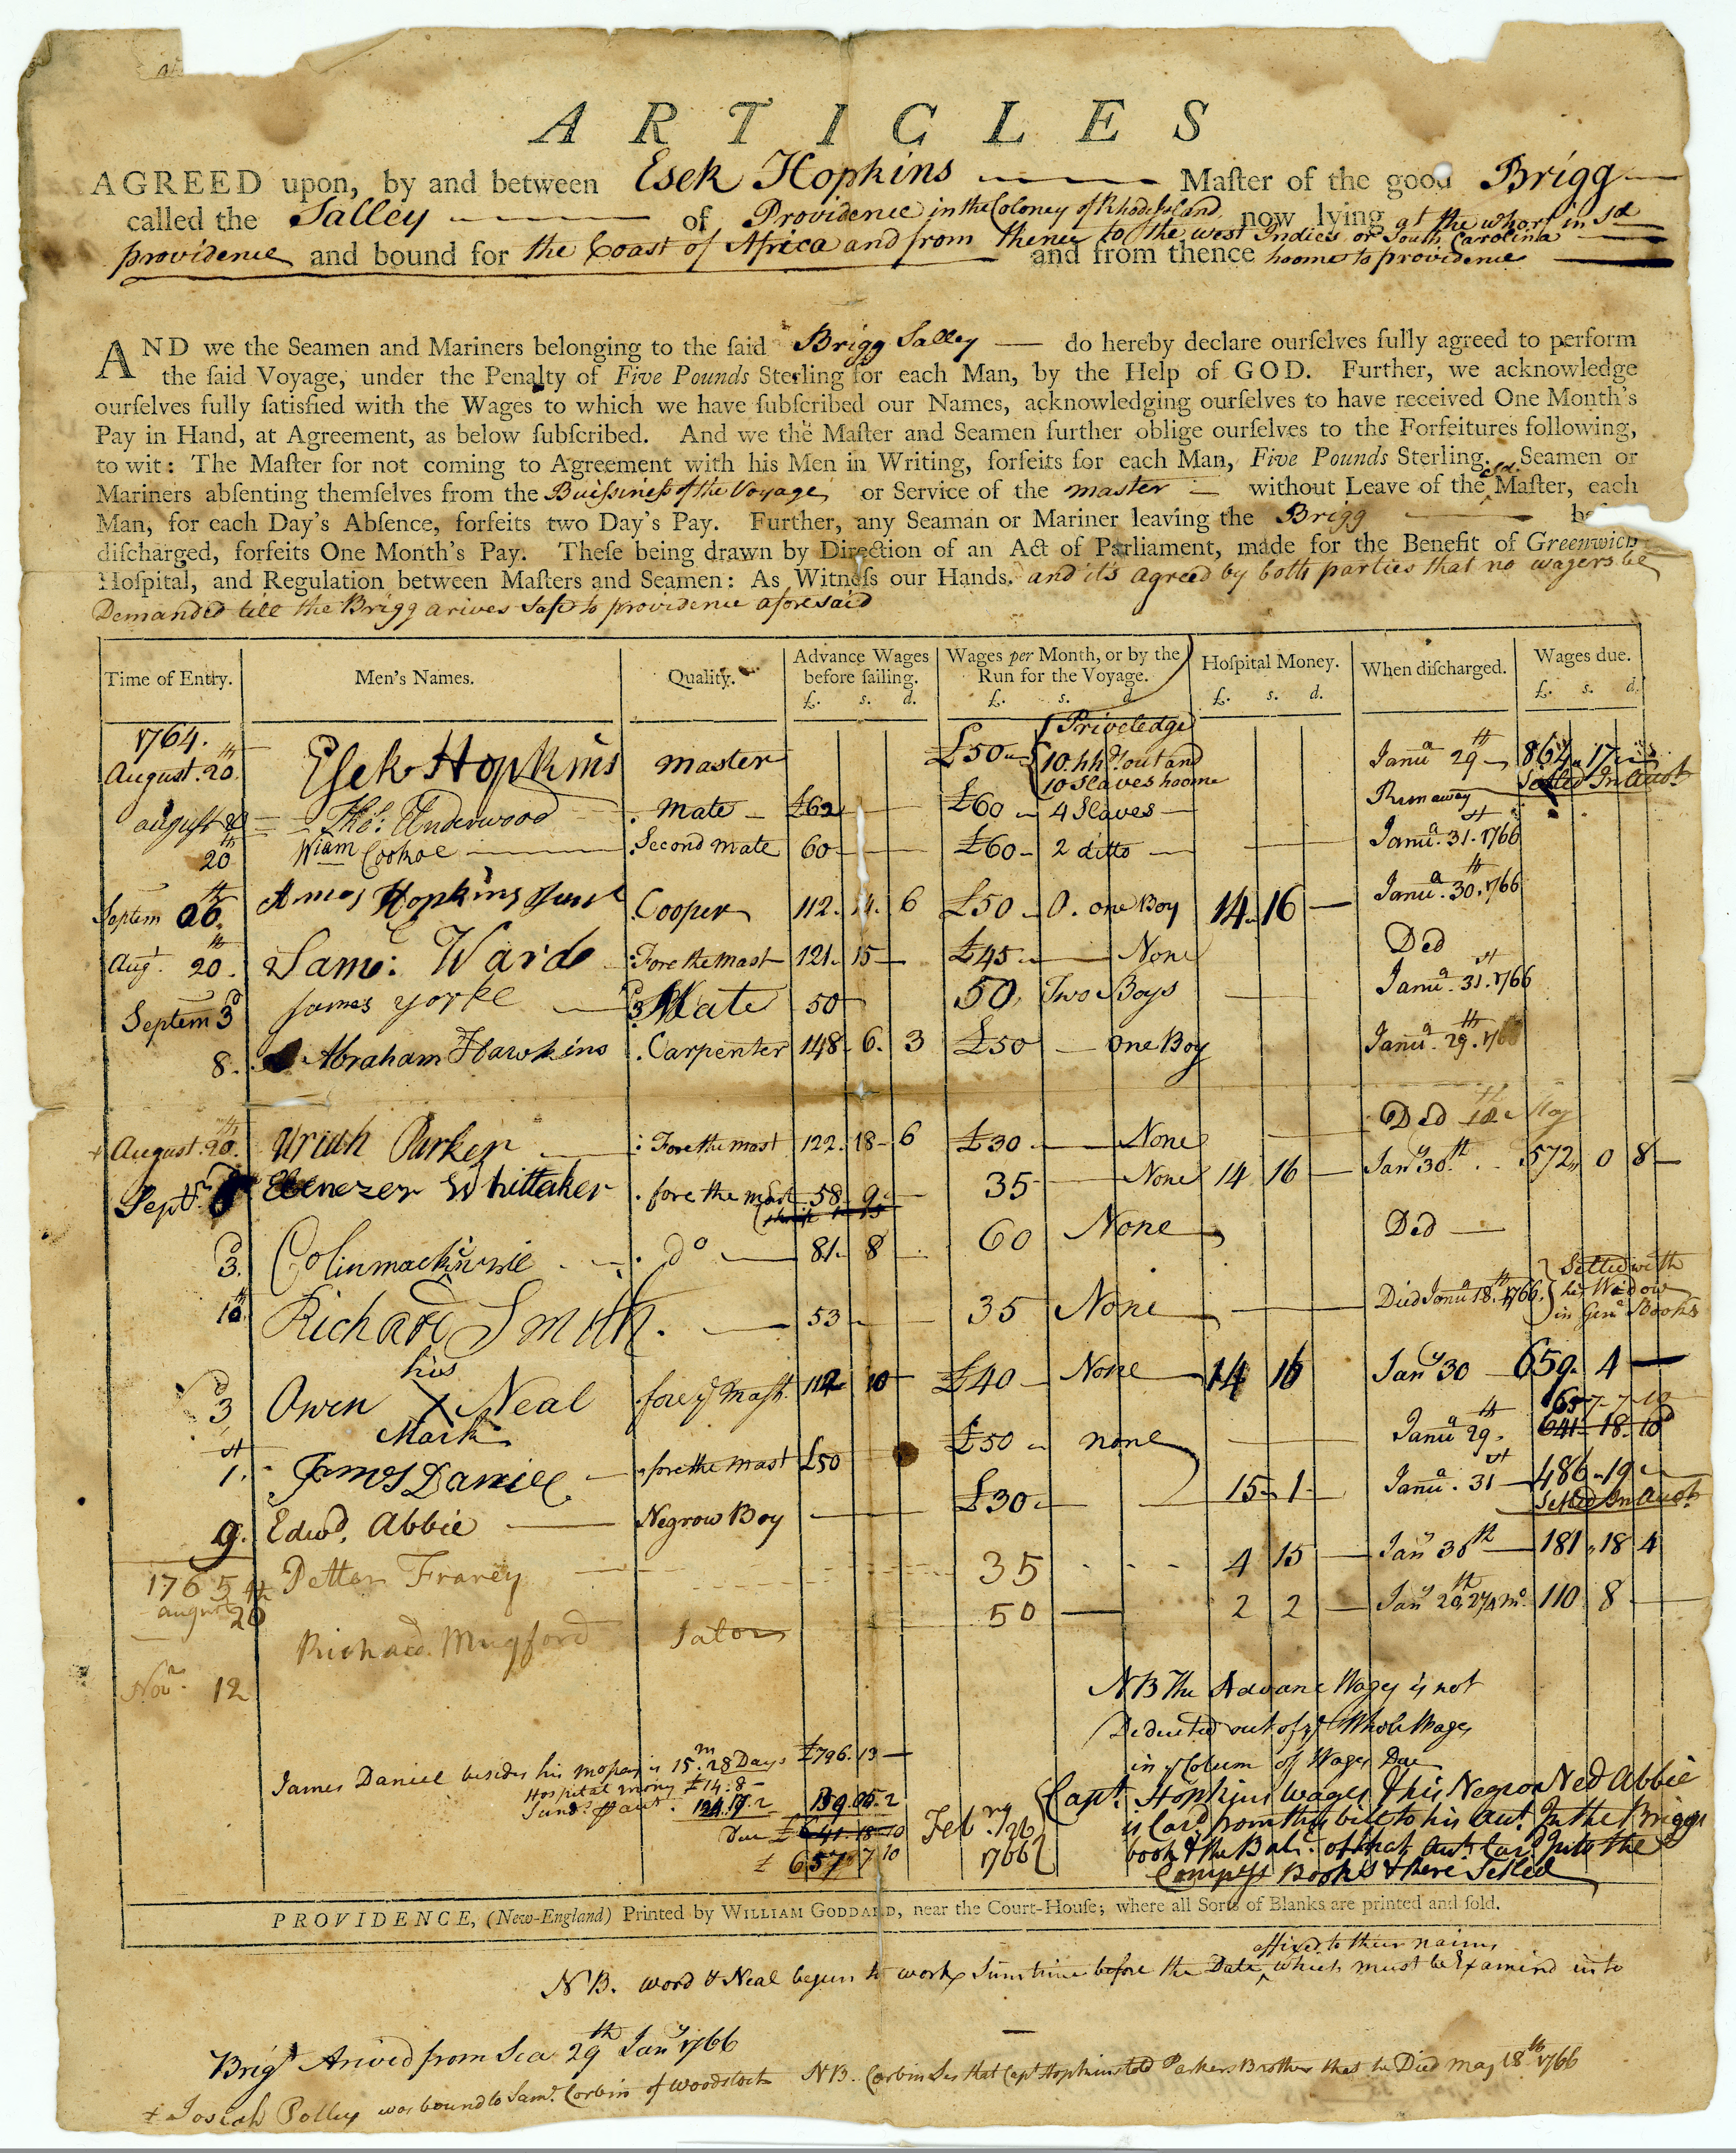 ARTICLES
AGREED upon, by and between Esek Hopkins Maſter of the good Brigg
called the Salley of Providence in the Coloney of Rhode Island now lying at the wharf in sd
providence and bound for the Coast of Africa and from thence to the west Indies or South Carolina and from thence hoome to providence
AND we the Seamen and Mariners belonging to the ſaid Brigg Salley do hereby declare ourſelves fully agreed to perform
the ſaid Voyage, under the Penalty of Five Pounds Sterling for each Man, by the Help of GOD. Further, we acknowledge
ourſelves fully ſatisfied with the Wages to which we have ſubſcribed our Names, acknowledging ourſelves to have received One Month's
Pay in Hand, at Agreement, as below ſubſcribed. And we the Maſter and Seamen further oblige ourſelves to the Forfeitures following,
to wit: The Maſter for not coming to Agreement with his Men in Writing, forfeits for each Man, Five Pounds Sterling. Seamen or
Mariners abſenting themſelves from the Buissiness of the Voyage or Service of the master without Leave of the sd. Maſter, each
Man, for each Day's Abſence, forfeits two Day's Pay. Further, any Seaman or Mariner leaving the Brigg
diſcharged, forfeits One Month's Pay. Theſe being drawn by Direction of an Act of Parliament, made for the Benefit of Greenwich
Hoſpital, and Regulation between Maſters and Seamen: As Witneſs our Hands. and it's agreed by both parties that no wagers be
Demanded till the Brigg arives Safe to providence aforesaid
Time of Entry. Men's Names. Quality. Advance Wages before ſailing. £. s. d. Wages per Month, or by the Run for the Voyage. £. s. d. Hoſpital Money. £. s. d. When diſcharged. Wages due. £. s. d.
1764.
August. 20th Esek Hopkins master £50 Priveledge 10 hhd out and 10 Slaves hoome Janua 29th 864 17 Setled In Accot
august Tho: Underwood Mate £60 £60 4 Slaves Runaway
20th Wiam Cookoe Second mate 60 £60 2 ditto Janua. 31st 1766
Septem 26th Amos Hopkins Junr Cooper 112 11 6 £50 0. one Boy 14 16 Janua. 30th 1766
Augt. 20th Sam: Ward Fore the mast 121 15 £45 None Ded
Septem 3d James yorke 3d Mate 50 50 Two Boys Janua. 31st 1766
8. Abraham Hawkins Carpenter 148 6 3 £50 one Boy Janua. 29th 1766
+ August 20th Uriah Parker Fore the mast 122 18 6 £30 None Ded 18th May
Septr Ebenezer Whittaker fore the mast 58 9 35 None 14 16 Jany 30th 572 0 8
3d Colin mackinzie do 81 8 60 None Ded
10th Richard Smith 53 35 None Died Janua 18th 1766. Setled with his Widow in Genl Books
3d Owen his X Mark Neal fore ye mast 112 10 £40 None 14 16 Jany 30 659 4
1st James Daniel fore the mast £50 £50 none Janua 29th 657 7 10
641 18 10
9. Edwd. Abbie Negrow Boy £30 15 1 Janua. 31st 486 19 Setled In Accot
1765
august 20th Petter Franey 35 4 15 Jany 30th 181 18 4
Novr 12 Richard Mugford Salor 50 2 2 Jany 29th 110 8
NB The Advanc Wages is not
Deducted out of ye Whole Wages
in ye Colum of Wages Due
James Daniel besides his mopay is 15m. 28 Days £796. 13
Hospital mony £14: 8
124. 17. 2 139. 05. 2
Due £641. 18 10
£ 657 7 10
Febry 26 1766
Capt. Hopkins Wages & his Negro Ned Abbie
is Card from this bill to his Acct. In the Briggs
book & the Balc. of that Acct. Card Into the
Compys Books & there Setled
PROVIDENCE, (New-England) Printed by WILLIAM GODDARD, near the Court-Houſe; where all Sorts of Blanks are printed and ſold.
NB. Word & Neal begun to work Sumtime before the Date affixed to their naims which must be Examind into
Brigt Arived from Sea 29th Jany 1766
+ Josiah Polley was bound to Saml. Corbin of Woodstock NB. Corbin Ses that Capt Hopkins told Parkers Brother that he Died May 18th 1766